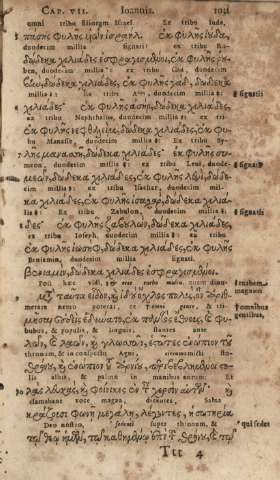 CAP. VII. Ioannis. 1031
omni tribu filiorum Israel. Ex tribu Iuda,
πάσης φυλῆς ὑῶν ἰσραήλ. ἐκ φυλῆς ἰούδα,
duodecim millia signati: ex tribu Ru-
δώδεκα χιλιάδες ἐσφραγισμένοι, ἐκ φυλῆς ῥου-
ben, duodecim millia: ex tribu Gad, duodecim
δώδεκα χιλιάδες, ἐκ φυλῆς γάδ, δώδεκα
millia: ex tribu Aser, duodecim millia: * signati
χιλιάδες· ἐκ φυλῆς ἀσήρ, δώδεκα χιλιάδες,
ex tribu Nephthalim, duodecim millia: ex tri-
ἐκ φυλῆς δώδεκα χιλιάδες, ἐκ φυ-
bu Manasse, duodecim millia: ex tribu Sy-
λῆς μανασσῆ, δώδεκα χιλιάδες· ἐκ φυλῆς συ-
meon, duodecim millia: ex tribu Leui, duode-
μεών, δώδεκα χιλιάδες, ἐκ φυλῆς λευί, δώδε-
cim millia: ex tribu Isachar, duodecim mil-
κα χιλιάδες, ἐκ φυλῆς δώδεκα χιλιά-
lia: Ex tribu Zabulon, duodecim millia: * signati
δες· ἐκ φυλῆς ζαβουλών, δώδεκα χιλιάδες,
ex tribu Ioseph, duodecim millia: ex tribu
ἐκ φυλῆς ἰωσήφ, δώδεκα χιλιάδες, ἐκ φυλῆς
Beniamin, duodecim millia signati.
βενιαμίν, δώδεκα χιλιάδες ἐσφραγισμένοι.
Post hæc vidi, turba quam dinu-
μετὰ ταῦτα εἶδον, ἰδοὺ ὄχλος πολὺς, ὃν ἀριθ-
merare nemo poterat, ex omni gente, & tri-
μῆσαι οὐδεὶς ἐδύνατο, ἐκ παντὸς ἔθνους, καὶ φυ-
bubus, & populis, & linguis, stantes ante
λῶν, καὶ λαῶν, καὶ γλωσσῶν, ἑστῶτες ἐνώπιον τοῦ
thronum, & in conspectu Agni, sto-
θρόνου, καὶ ἐνώπιον τοῦ ἀρνίου, στο-
lis albis, & palmæ in manibus eorum: Et
λὰς λευκάς, καὶ φοίνικες ἐν ταῖς χερσὶν αὐτῶν· καὶ
clamabant voce magna, dicentes, Salus
κράζουσι φωνῇ μεγάλῃ, λέγοντες, ἡ σωτηρία
Deo nostro, sedenti super thronum, & * qui sedet
τῷ θεῷ ἡμῶν, τῷ καθημένῳ ἐπὶ τοῦ θρόνου, καὶ τῷ
Ttt 4